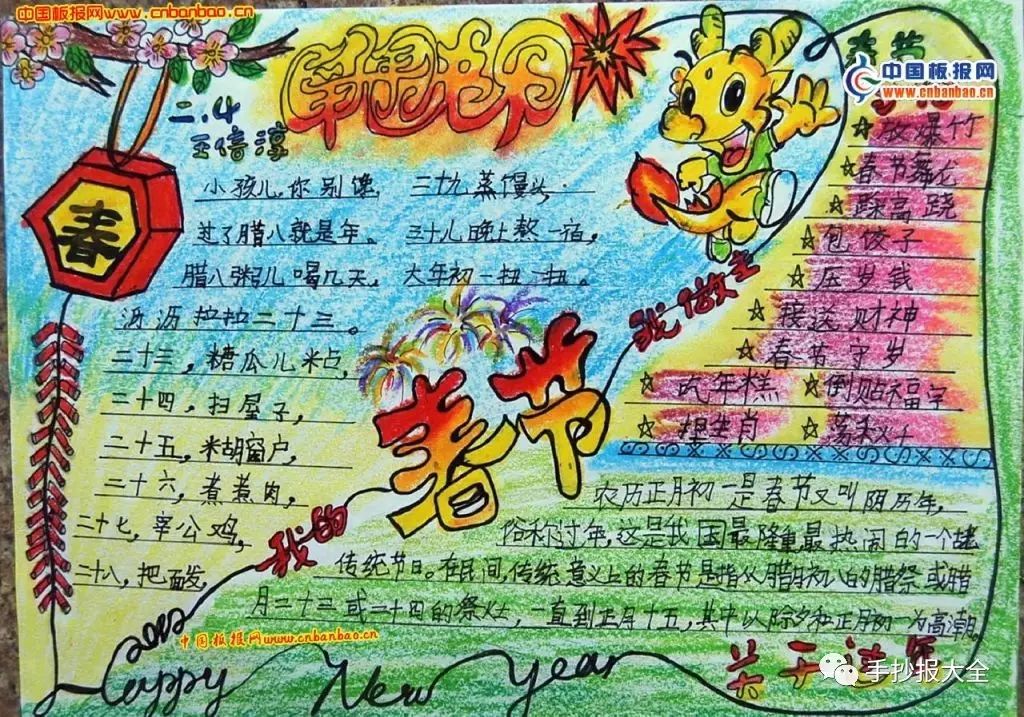 中国板报网 www.cnbanbao.cn
二.4
王倍淳
春节
中国板报网
www.cnbanbao.cn
春
小孩儿你别馋
过了腊八就是年。
腊八粥儿喝几天,
沥沥拉拉二十三。
二十三,糖瓜儿米占,
二十四,扫屋子,
二十五,米胡窗户,
二十六,煮煮肉,
二十七,宰公鸡,
二十八,把面发,
二十九蒸馒头.
三十儿晚上熬一宿,
大年初一扭一扭。
☆放爆竹
☆春节舞龙
☆踩高跷
☆包饺子
☆压岁钱
☆接送财神
☆春节守岁
☆吃年糕 ☆倒贴福字
我的
春节
我做主
农历正月初一是春节又叫阴历年,
俗称过年,这是我国最隆重最热闹的一个
传统节日。在民间,传统意义上的春节是指从腊月初八的腊祭或腊
月二十三或二十四的祭灶,一直到正月十五,其中以除夕和正月初一为高潮。
2012
中国板报网www.cnbanbao.cn
Happy New Year
手抄报大全